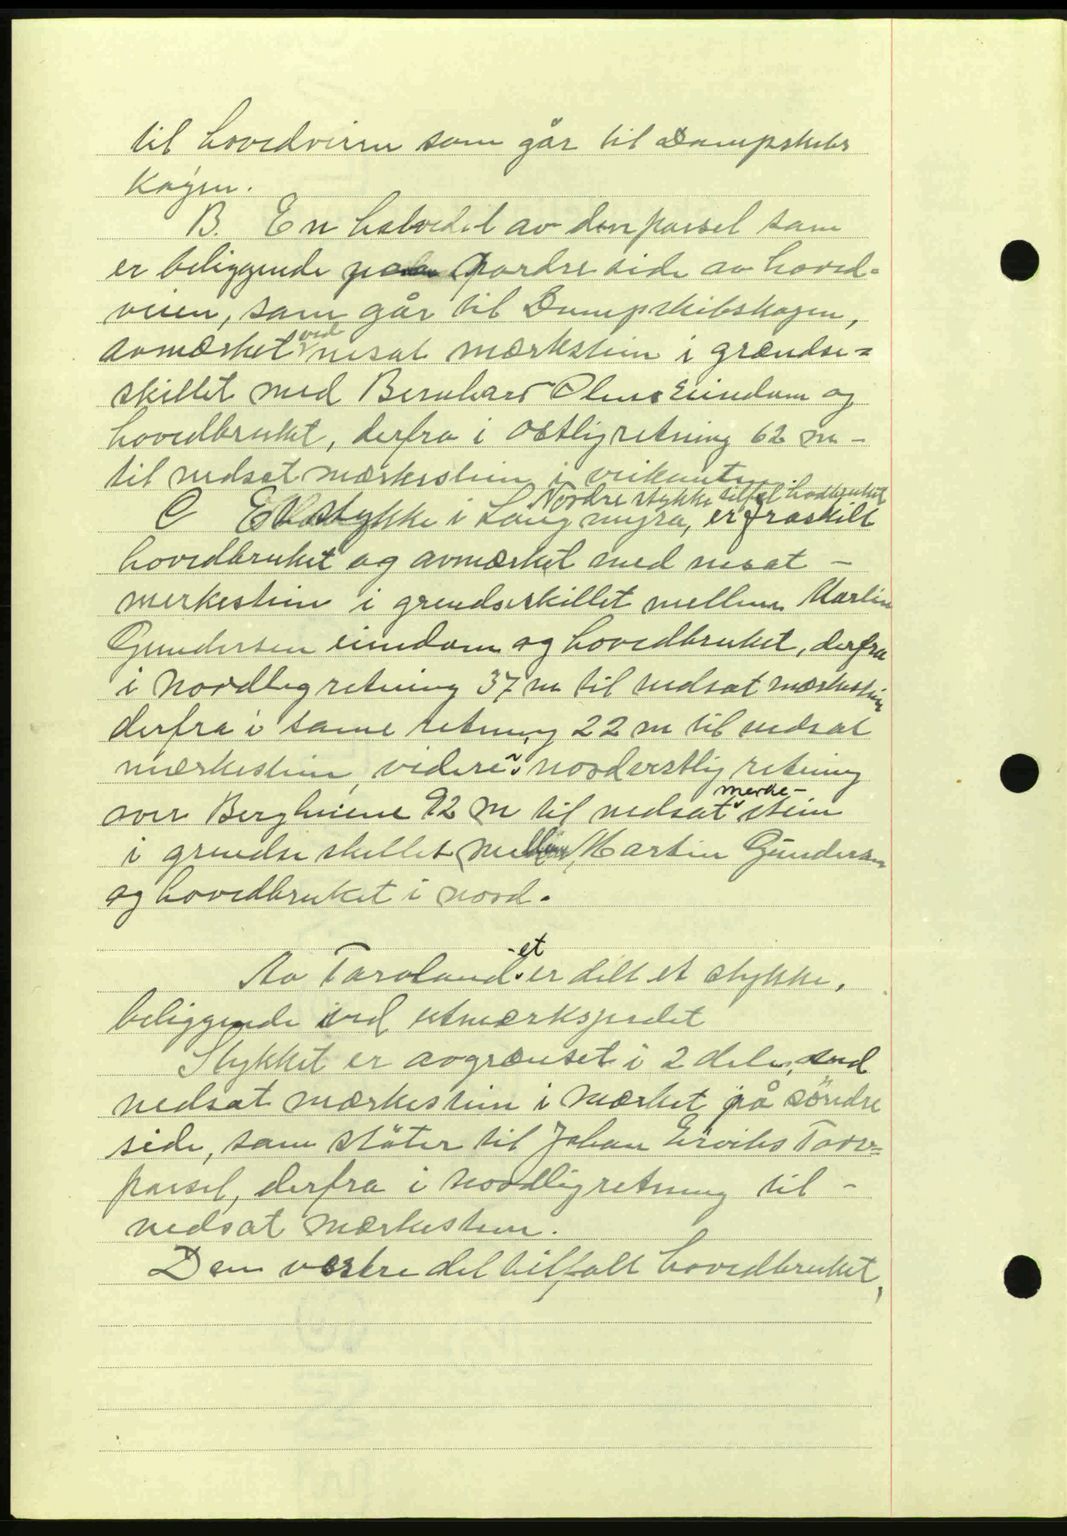 til hovedveien som går til Dampskibs
kajen.
B. En halvedel av den parsel som
er beliggende nordre side av hoved-
veien, som går til Dampskibskajen,
avmærket ved nesat mærkstein i grændse=
skillet med Bernhard Olsens Eiendom og
hovedbruket, derfra i østlig retning 62 m -
til nedsat mærkestein i veikanten
Nordre stykke tilfal hovdbruket
C Et stykke i Langmyra, er fraskilt
hovedbruket og avmærket med nesat -
merkestein i grendseskillet mellem Martin
Gundersen eiendom og hovedbruket, derfra
i Nordlig retning 37 m til nedsat mærkestein
derfra i same retning 22 m til nedsat
mærkestein, videre i nordøstlig retning
over Bergheiene 92 m til nedsat merke- stein
i grendseskillet mellem Martin Gundersen
og hovedbruket i nord.
Av Tarelandet er delt et stykke,
beliggende ved utmærksjerdet
Stykket er avgrænset i 2 dele, ved
nedsat mærkestein i mærket på söndre
side, som støter til Johan Erviks Tare=
parsel, derfra i nordlig retning til -
nedsat mærkestein.
Den vestre del tilfalt hovedbruket,